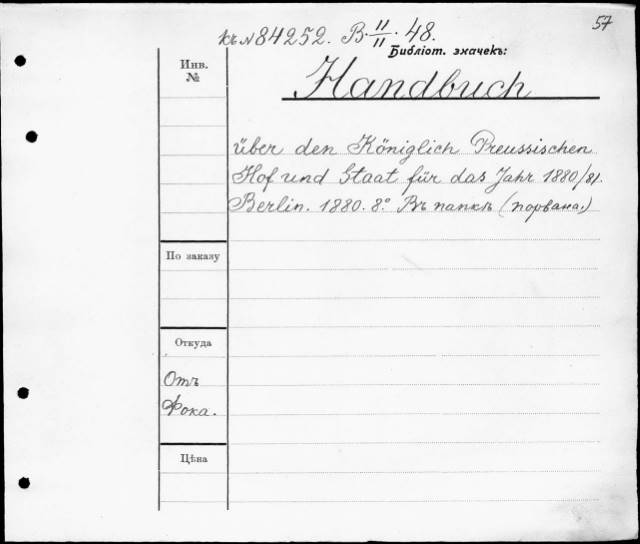 57
къ № 84252. В. II/II. 48.
Библіот. значекъ:
Инв.
№
Handbuch
über den Königlich Preussischen
Hof und Staat für das Jahr 1880/81.
Berlin. 1880. 8° Въ папкѣ (порвана.)
По заказу
Откуда
Отъ
Фока.
Цѣна